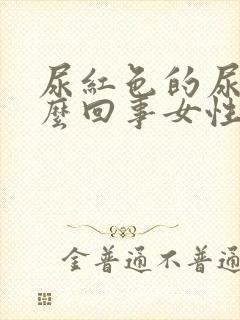 尿紅色的尿
麼回事女性
金普通不普通